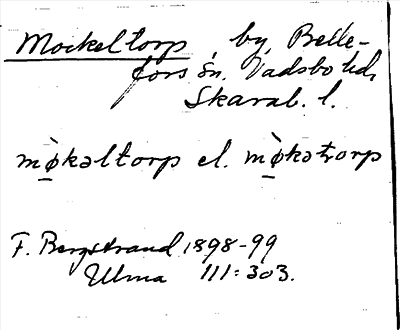 Mockeltorp, by, Belle-
fors sn. Vadsbo hd,
Skarab. l.
mø̀kəltorp el. mø̀kətrorp
F. Bergstrand 1898-99
Ulma 111:303.